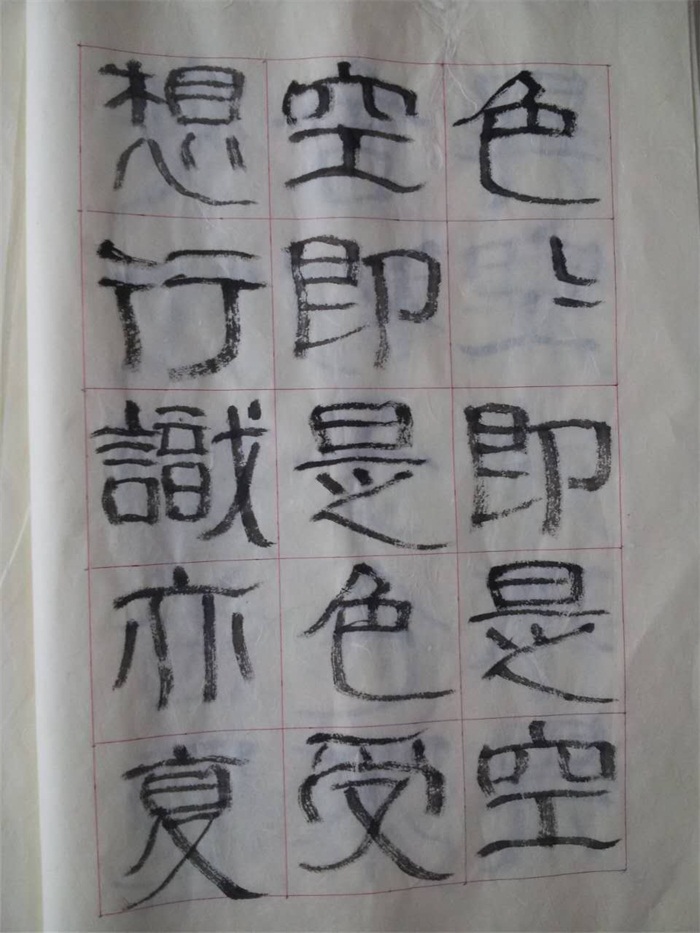 色〻即是空
空即是色受
想行識亦复